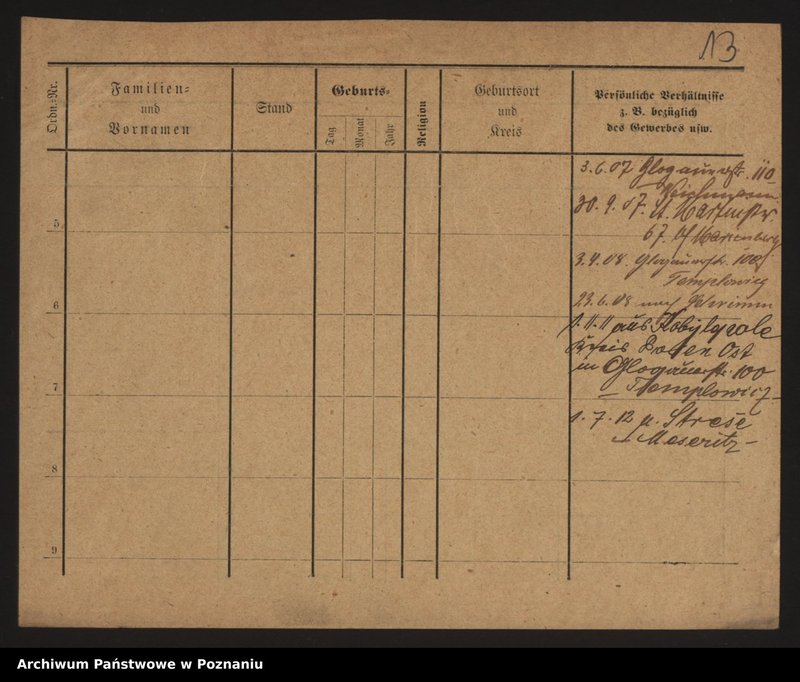 13
Ordn.-Nr.
Familien-
und
Vornamen
Stand
Geburts-
Tag
Monat
Jahr
Religion
Geburtsort
und
Kreis
Persönliche Verhältnisse
z. B. bezüglich
des Gewerbes usw.
3.6.07 Glogauerstr. 110
30.9.07. St. Martinstr
67. bf
3.4.08. Glogauerstr. 100
Templowicz
23.6.08 nach
1.11.11 aus Kobylepole
Kreis Posen Ost
in Glogauerstr. 100
Templowicz
1.7.12 n. Strese
Meseritz
5
6
7
8
9
Archiwum Państwowe w Poznaniu